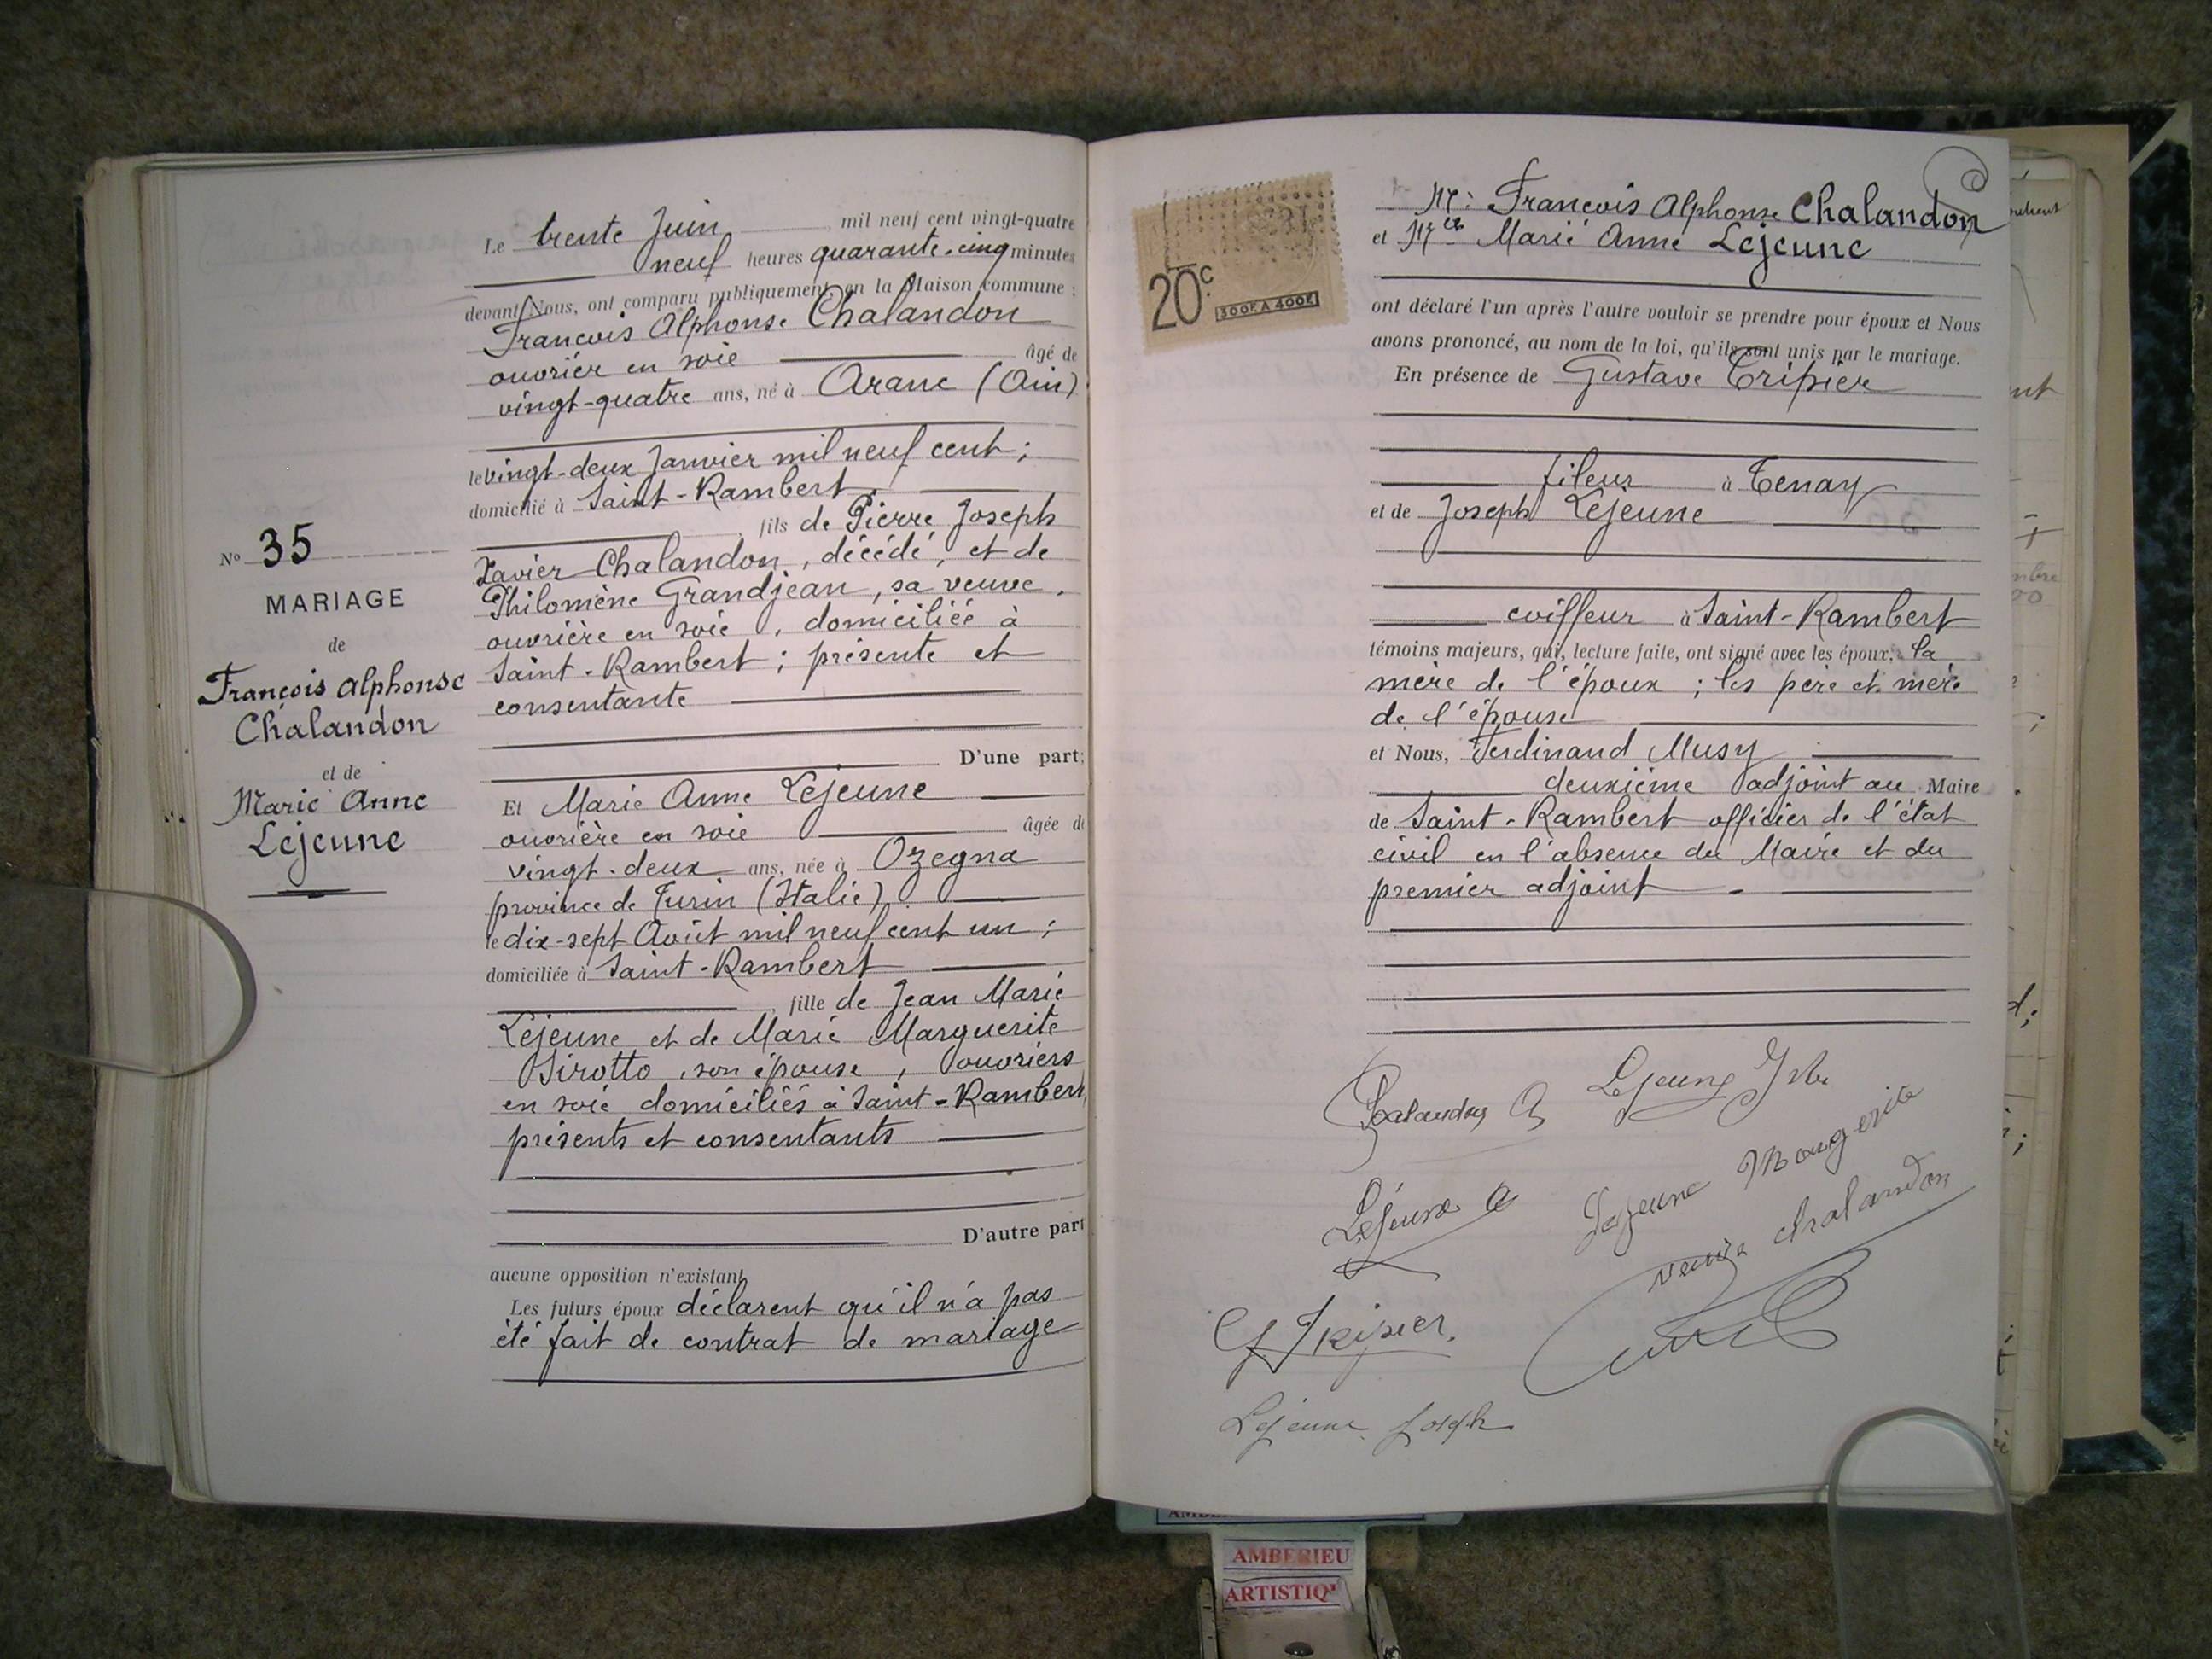 Nº 35
MARIAGE
de
François Alphonse
Chalandon
et de
Marie Anne
Lejeune
Le trente Juin mil neuf cent vingt-quatre
neuf heures quarante-cinq minutes
devant Nous, ont comparu publiquement, en la Maison commune :
François Alphonse Chalandon
ouvrier en soie âgé de
vingt-quatre ans, né à Aranc (Ain)
le vingt-deux Janvier mil neuf cent ;
domicilié à Saint-Rambert
fils de Pierre Joseph
Xavier Chalandon, décédé, et de
Philomène Grandjean, sa veuve,
ouvrière en soie, domiciliée à
Saint-Rambert ; présente et
consentante
D'une part;
Et Marie Anne Lejeune
ouvrière en soie âgée de
vingt-deux ans, née à Ozegna
province de Turin (Italie)
le dix-sept Août mil neuf cent un ;
domiciliée à Saint-Rambert
fille de Jean Marie
Lejeune et de Marie Marguerite
son épouse, ouvriers
en soie domiciliés à Saint-Rambert,
présents et consentants
D'autre part
aucune opposition n'existant
Les futurs époux déclarent qu'il n'a pas
été fait de contrat de mariage
20c.
300F. A 400F.
Mr François Alphonse Chalandon
et Mlle Marie Anne Lejeune
ont déclaré l'un après l'autre vouloir se prendre pour époux et Nous
avons prononcé, au nom de la loi, qu'ils sont unis par le mariage.
En présence de Gustave Tripier
fileur à Tenay
et de Joseph Lejeune
coiffeur à Saint-Rambert
témoins majeurs, qui, lecture faite, ont signé avec les époux, la
mère de l'époux ; les père et mère
de l'épouse
et Nous, Ferdinand Musy
deuxième adjoint au Maire
de Saint-Rambert officier de l'état
civil en l'absence du Maire et du
premier adjoint
Chalandon A Lejeune
Lejeune A Lejeune Margerite
veuve chalandon
G. Tripier.
Lejeune Joseph
AMBERIEU
ARTISTIQ'